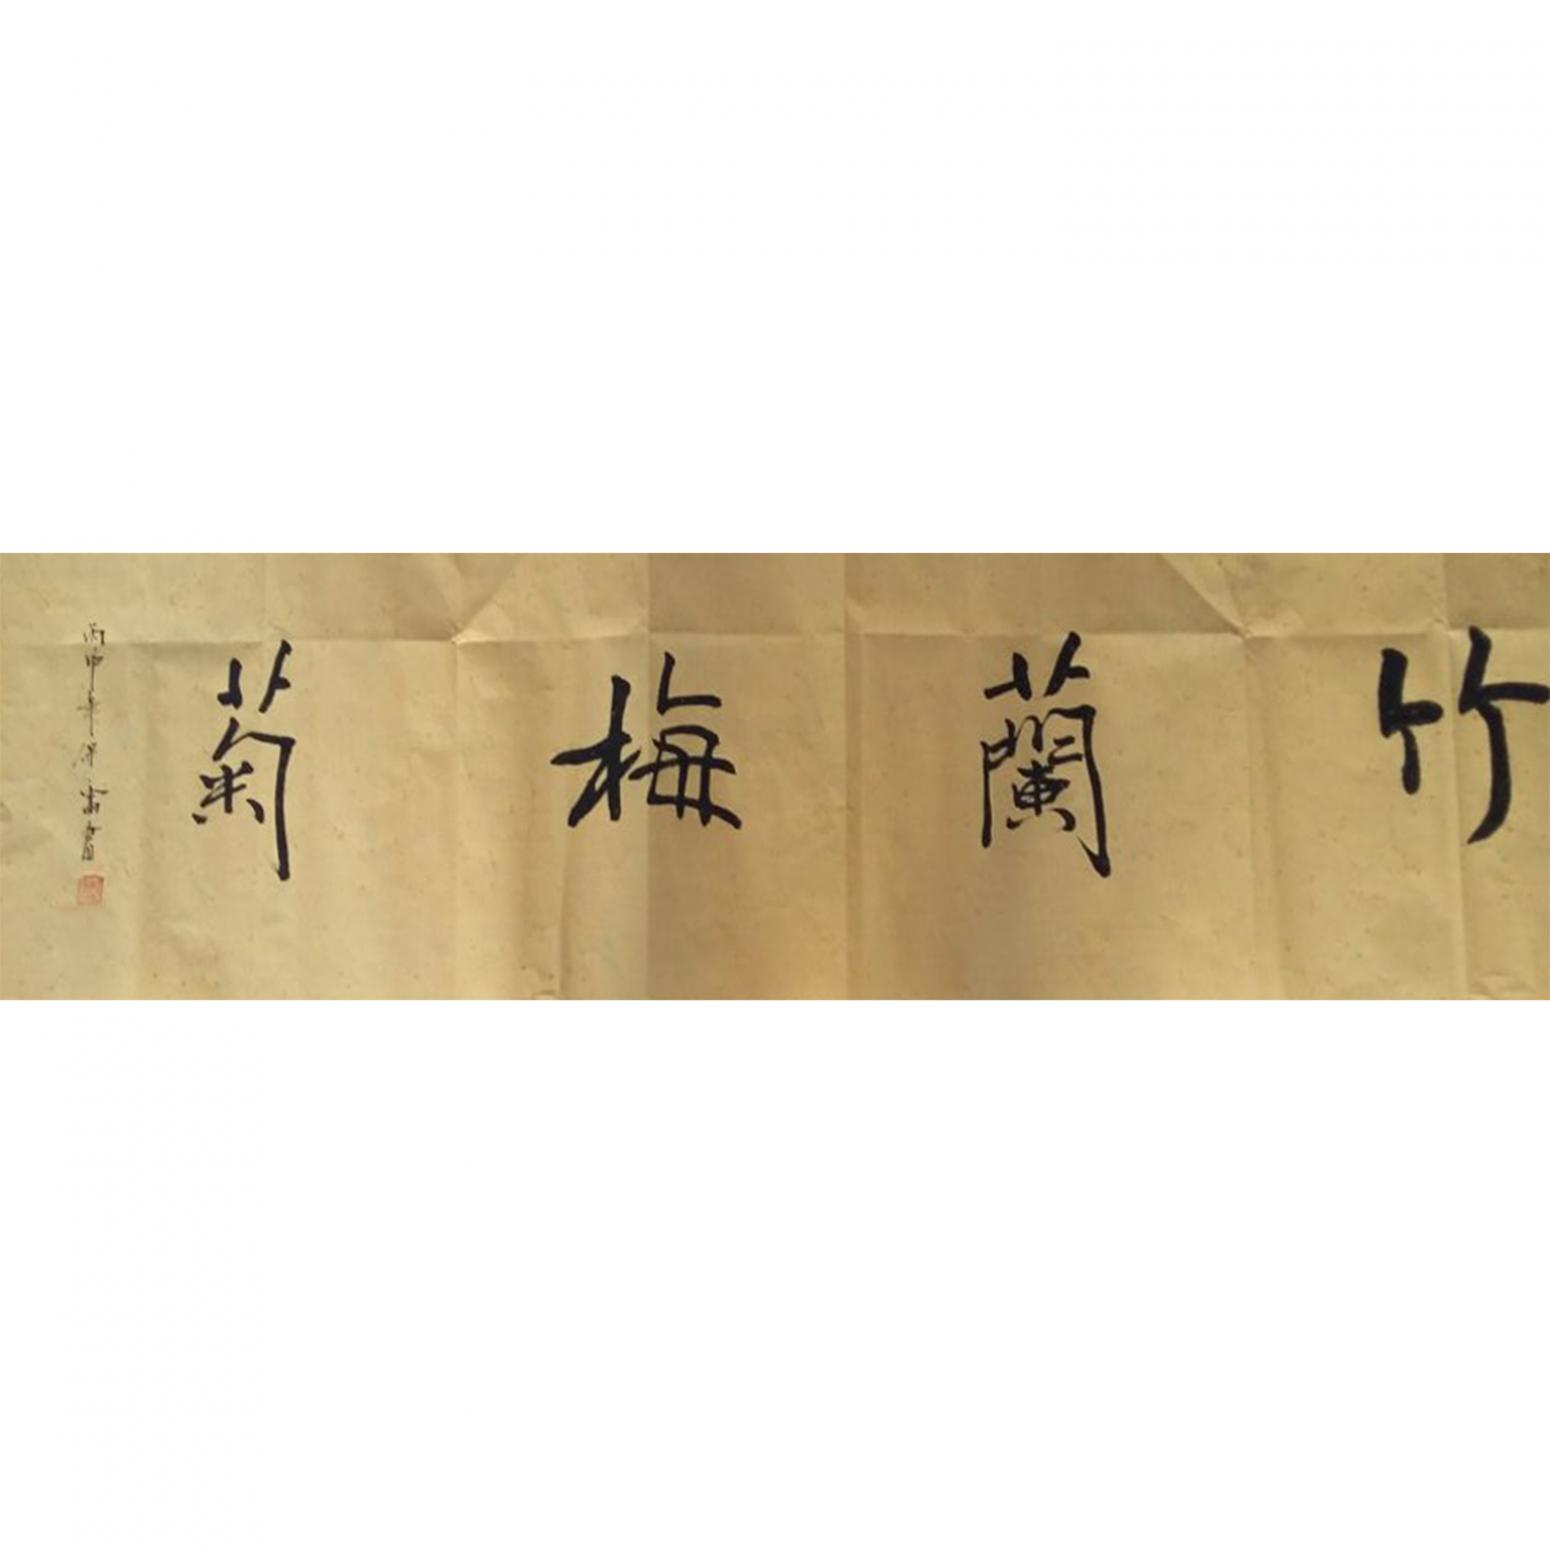 竹蘭梅菊
丙申年
書